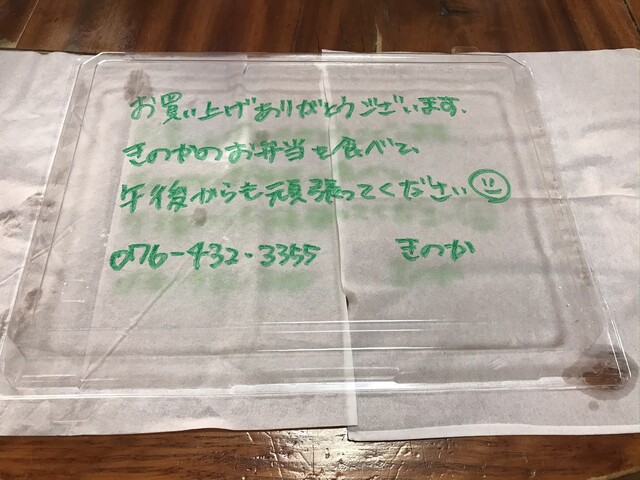 お買い上げありがとうございます.
きのかのお弁当を食べて、
午後からも頑張ってください
076-432・3355 きのか